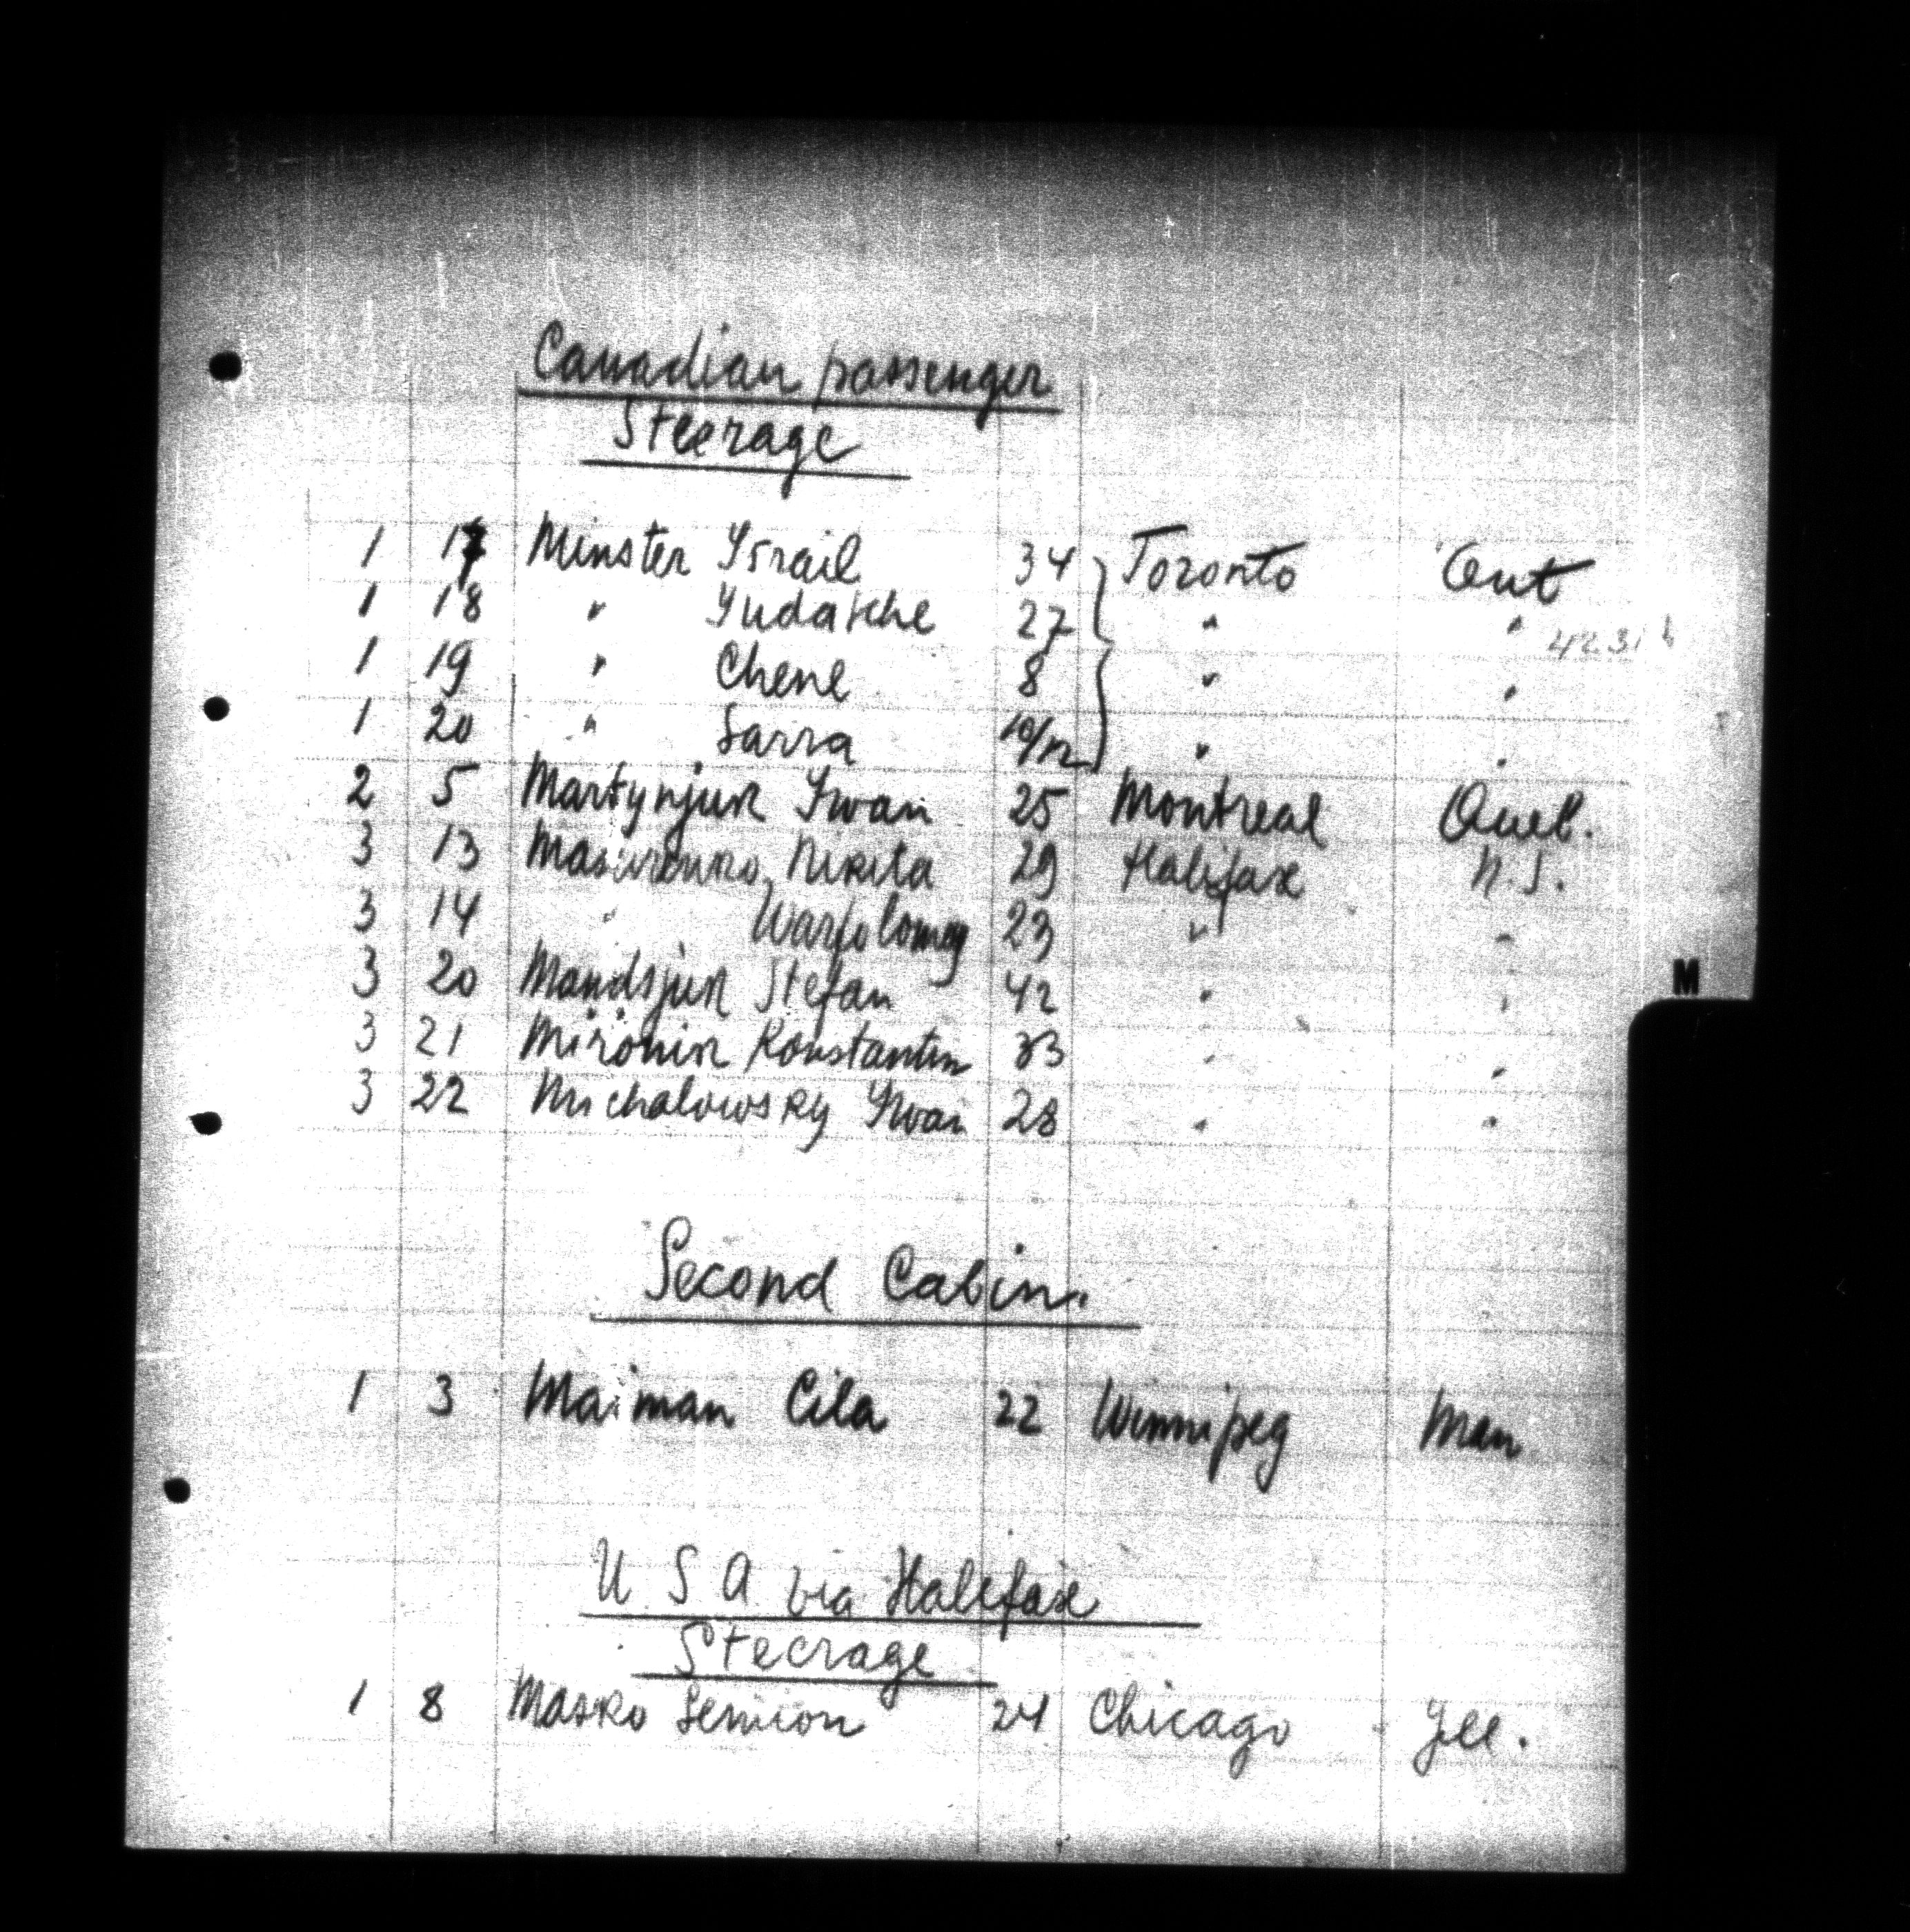 Canadian passenger
Steerage
1 17 Minster Ysrail 34 Toronto Ont
1 18 " Yudasche 27 " "
1 19 " Chene 8 " "
1 20 " Sarra 10/12 " "
2 5 Martynjuk Ywan 25 Montreal Queb.
3 13 Masurenko, Nikita 29 Halifax N.S.
3 14 " Warfolomey 23 " "
3 20 Mandsjuk Stefan 42 " "
3 21 Mironik Konstantin 33 " "
3 22 Michalowsky Ywan 28 " "
M
Second Cabin.
1 3 Maiman Cila 22 Winnipeg Man
U. S. A. via Halifax
Steerage
1 8 Masko Semion 24 Chicago Yll.